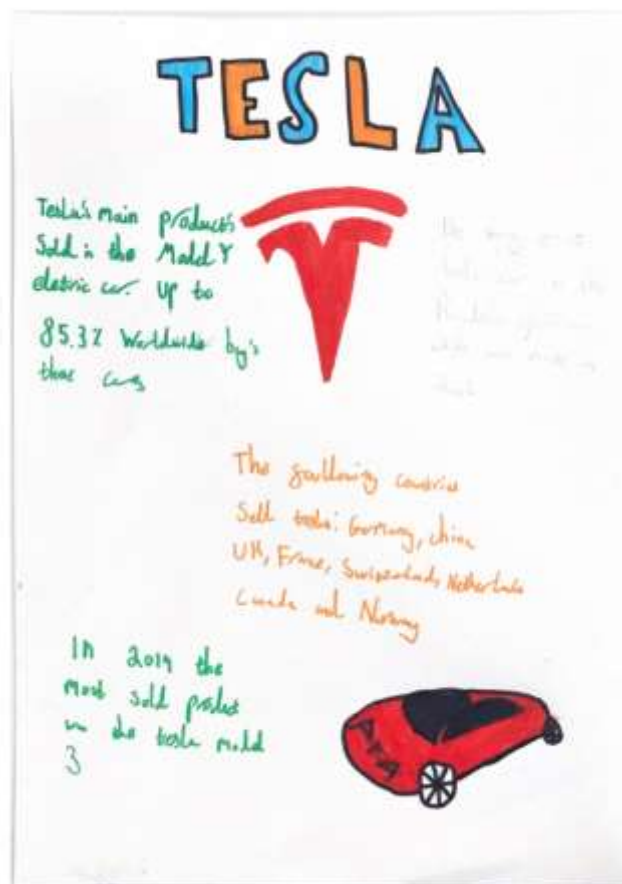 TESLA
Tesla's main product's
Sold is the Modd Y
eletric car. Up to
85.3% Worldwide by's
those cars
The foullowing countries
Sell tesla: Germany, china
UK, France, Swizerland, Netherlands
Canada and Norway
In 2019 the
most sold product
was the tesla modd
3